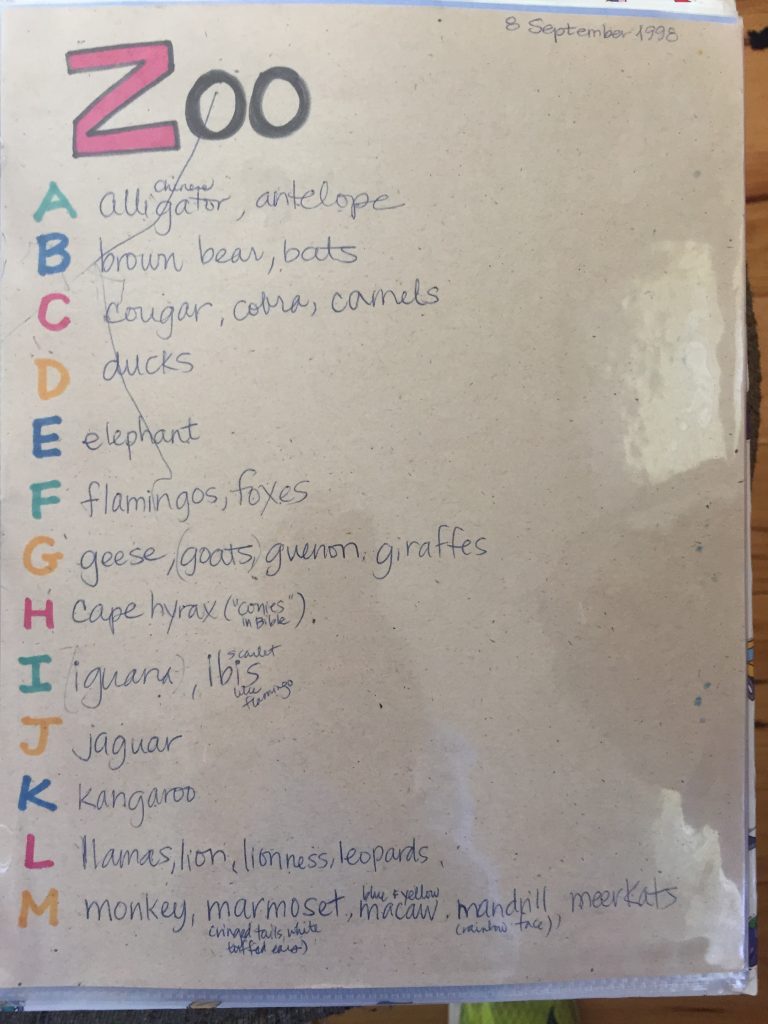 8 September 1998
Zoo
A alligator, antelope
Chinese
B brown bear, bats
C cougar, cobra, camels
D ducks
E elephant
F flamingos, foxes
G geese, (goats), guenon, giraffes
H cape hyrax ("conies" in Bible).
I (iguana), ibis
scarlet
like flamingo
J jaguar
K kangaroo
L llamas, lion, lionness, leopards
M monkey, marmoset, macaw, mandrill, meerkats
blue + yellow
(ringed tails, white tuffed ears)
(rainbow face)